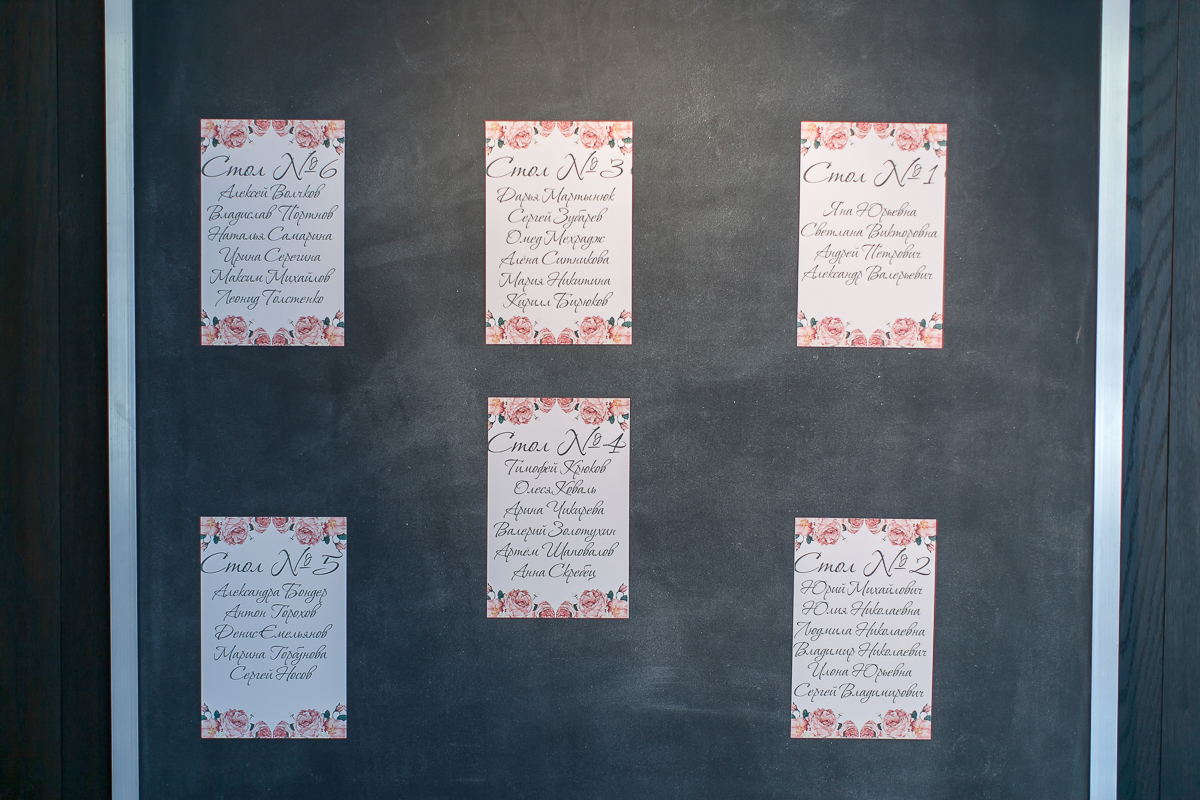 Стол №6
Алексей Волчков
Владислав Портнов
Наталья Самарина
Ирина Серегина
Максим Михайлов
Леонид Толстенко
Стол №3
Дарья Мартынюк
Сергей Зубарев
Омед Мехрадж
Алена Ситникова
Мария Никитина
Кирилл Бирюков
Стол №1
Яна Юрьевна
Светлана Викторовна
Андрей Петрович
Александр Валерьевич
Стол №4
Тимофей Крюков
Олеся Коваль
Арина Чикирева
Валерий Золотухин
Артём Шаповалов
Анна Скребец
Стол №5
Александра Бондер
Антон Горохов
Денис Емельянов
Марина Горбунова
Сергей Носов
Стол №2
Юрий Михайлович
Юлия Николаевна
Людмила Николаевна
Владимир Николаевич
Илона Юрьевна
Сергей Владимирович